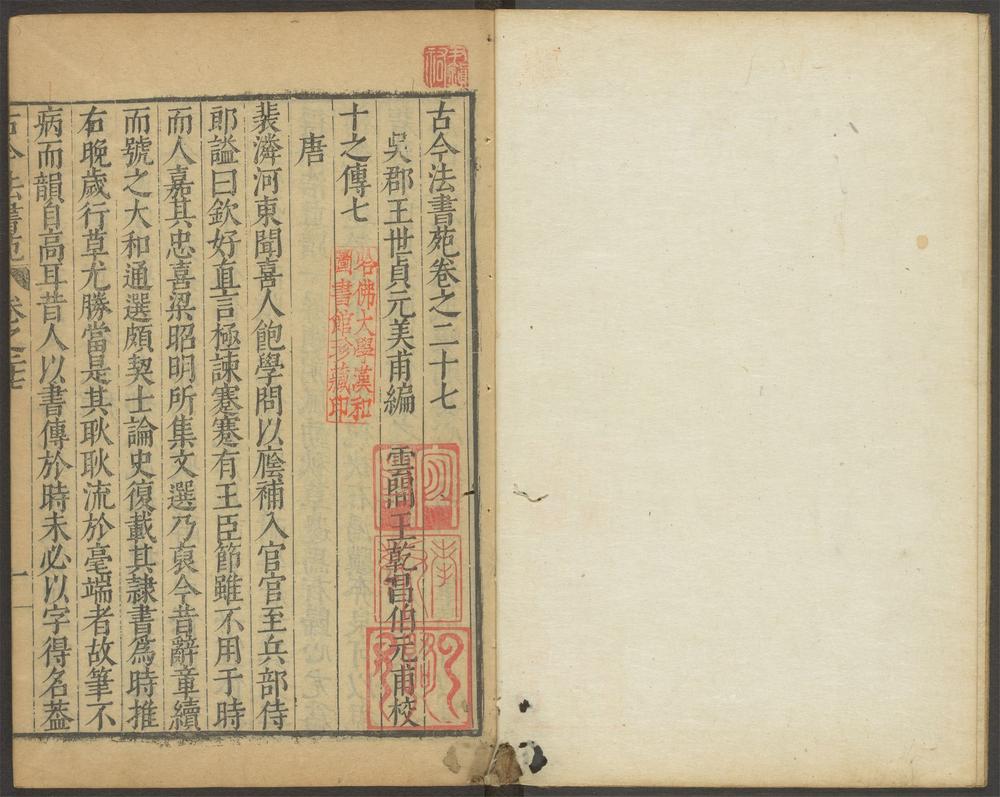 古今法書苑卷之二十七
吳郡王世貞元美甫編 雲間王乾昌伯元甫校
十之傳七
唐
裴潾河東聞喜人飽學問以廕補入官官至兵部侍
郎謚曰欽好直言極諫蹇蹇有王臣節雖不用于時
而人嘉其忠喜梁昭明所集文選乃裒今昔辭章續
而號之大和通選頗契士論史復載其隸書爲時推
右晚歲行草尤勝當是其耿耿流於毫端者故筆不
病而韻自高耳昔人以書傳於時未必以字得名蓋
古今法書苑 卷之二十七 一
哈佛大學漢和
圖書館珍藏印